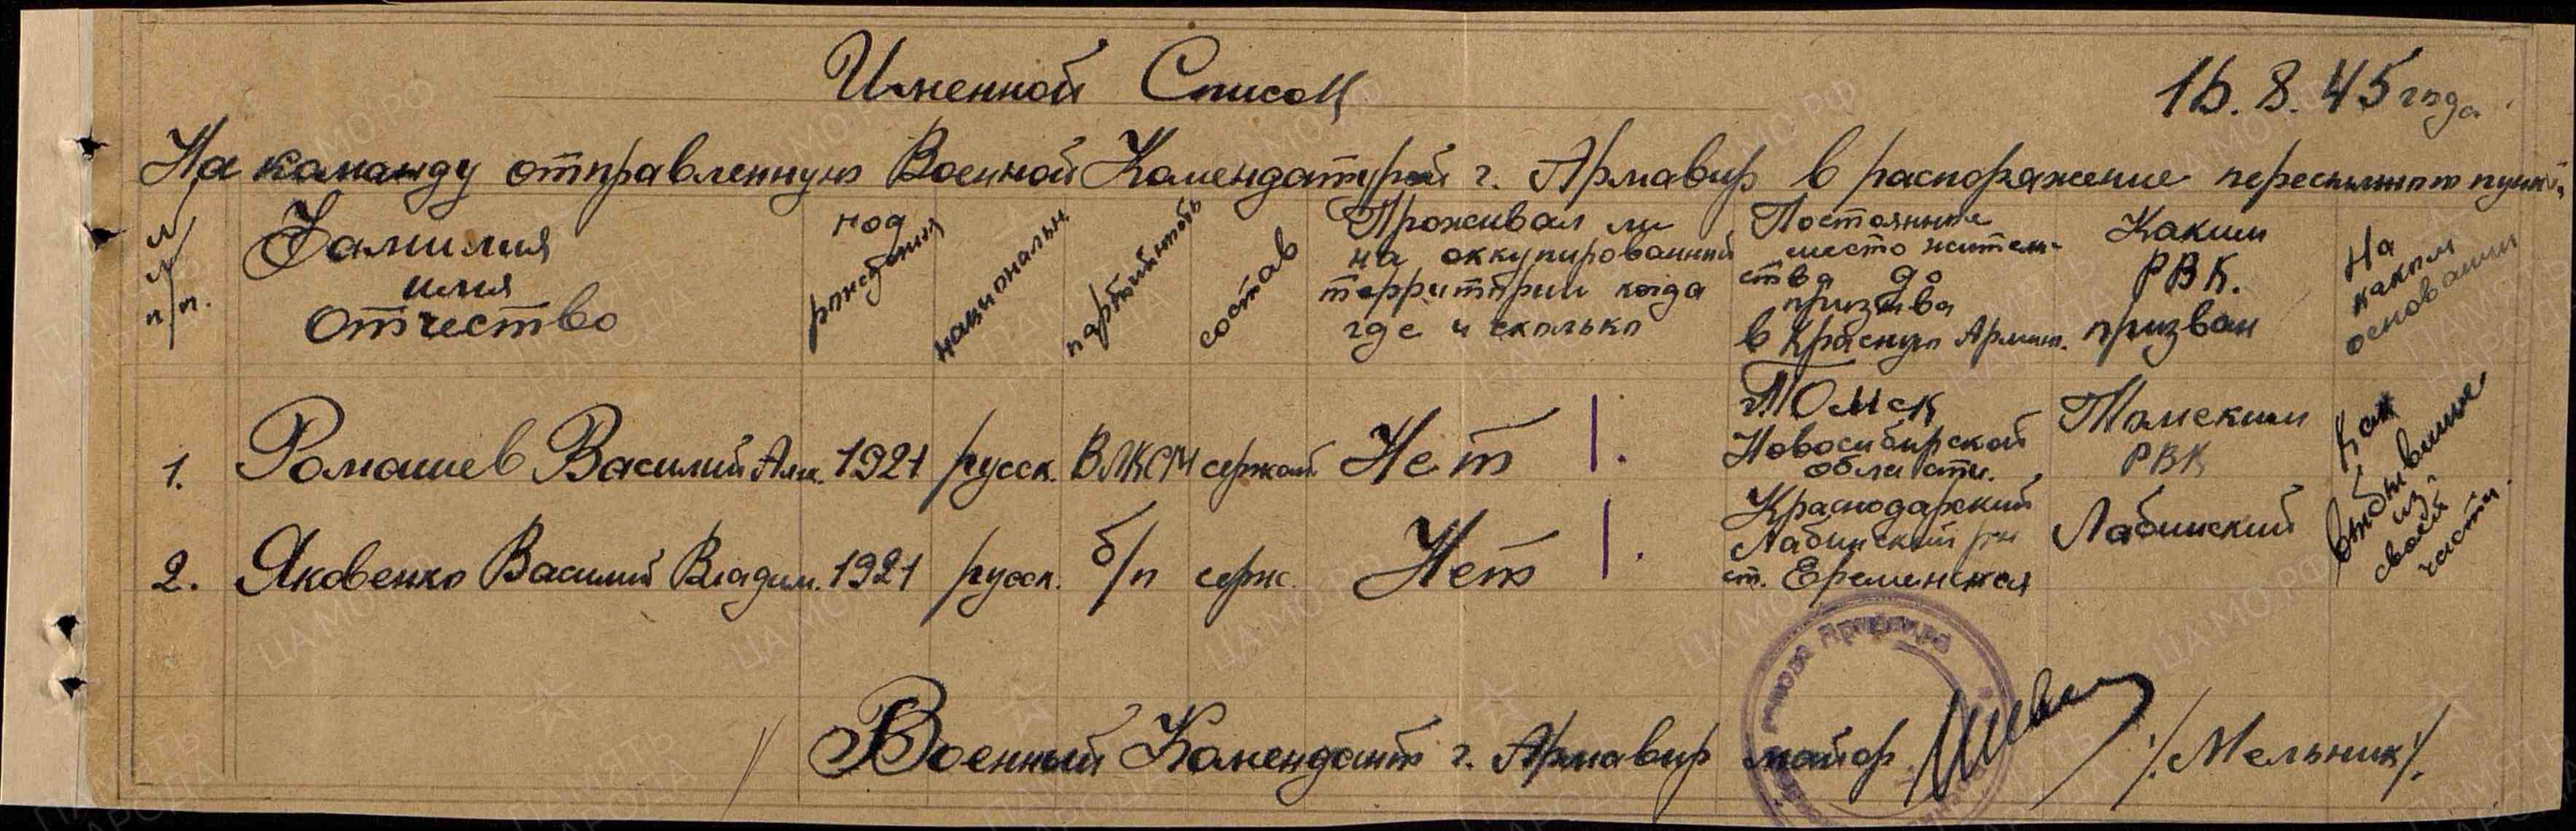 Именной Список
15.8.45 года
На команду отправленную Военной Комендатурой г. Армавир в распоряжение пересыльного пункта
№ № п/п.
Фамилия
имя
Отчество
год
рождения
националън.
партийность
состав
Проживал ли
на оккупированной
территории когда
где и сколько
Постоянное
место житель-
ства до
призыва
в Красную Армию.
Каким
РВК.
призван
На
каком
основании
1. Ромашев Василий Алек. 1921 русск. ВЛКСМ сержант Нет
г. Томск
Новосибирской
области.
Томским
РВК
Как
отбывшие
из
своей
части.
2. Яковенко Василий Владим. 1921 русск. б/п серж. Нет
Краснодарский
Лабинский р-н
ст. Еременская
Лабинский
Военный Комендант г. Армавир майор /Мельник/.
ЦАМО.РФ
ПАМЯТЬ
НАРОДА